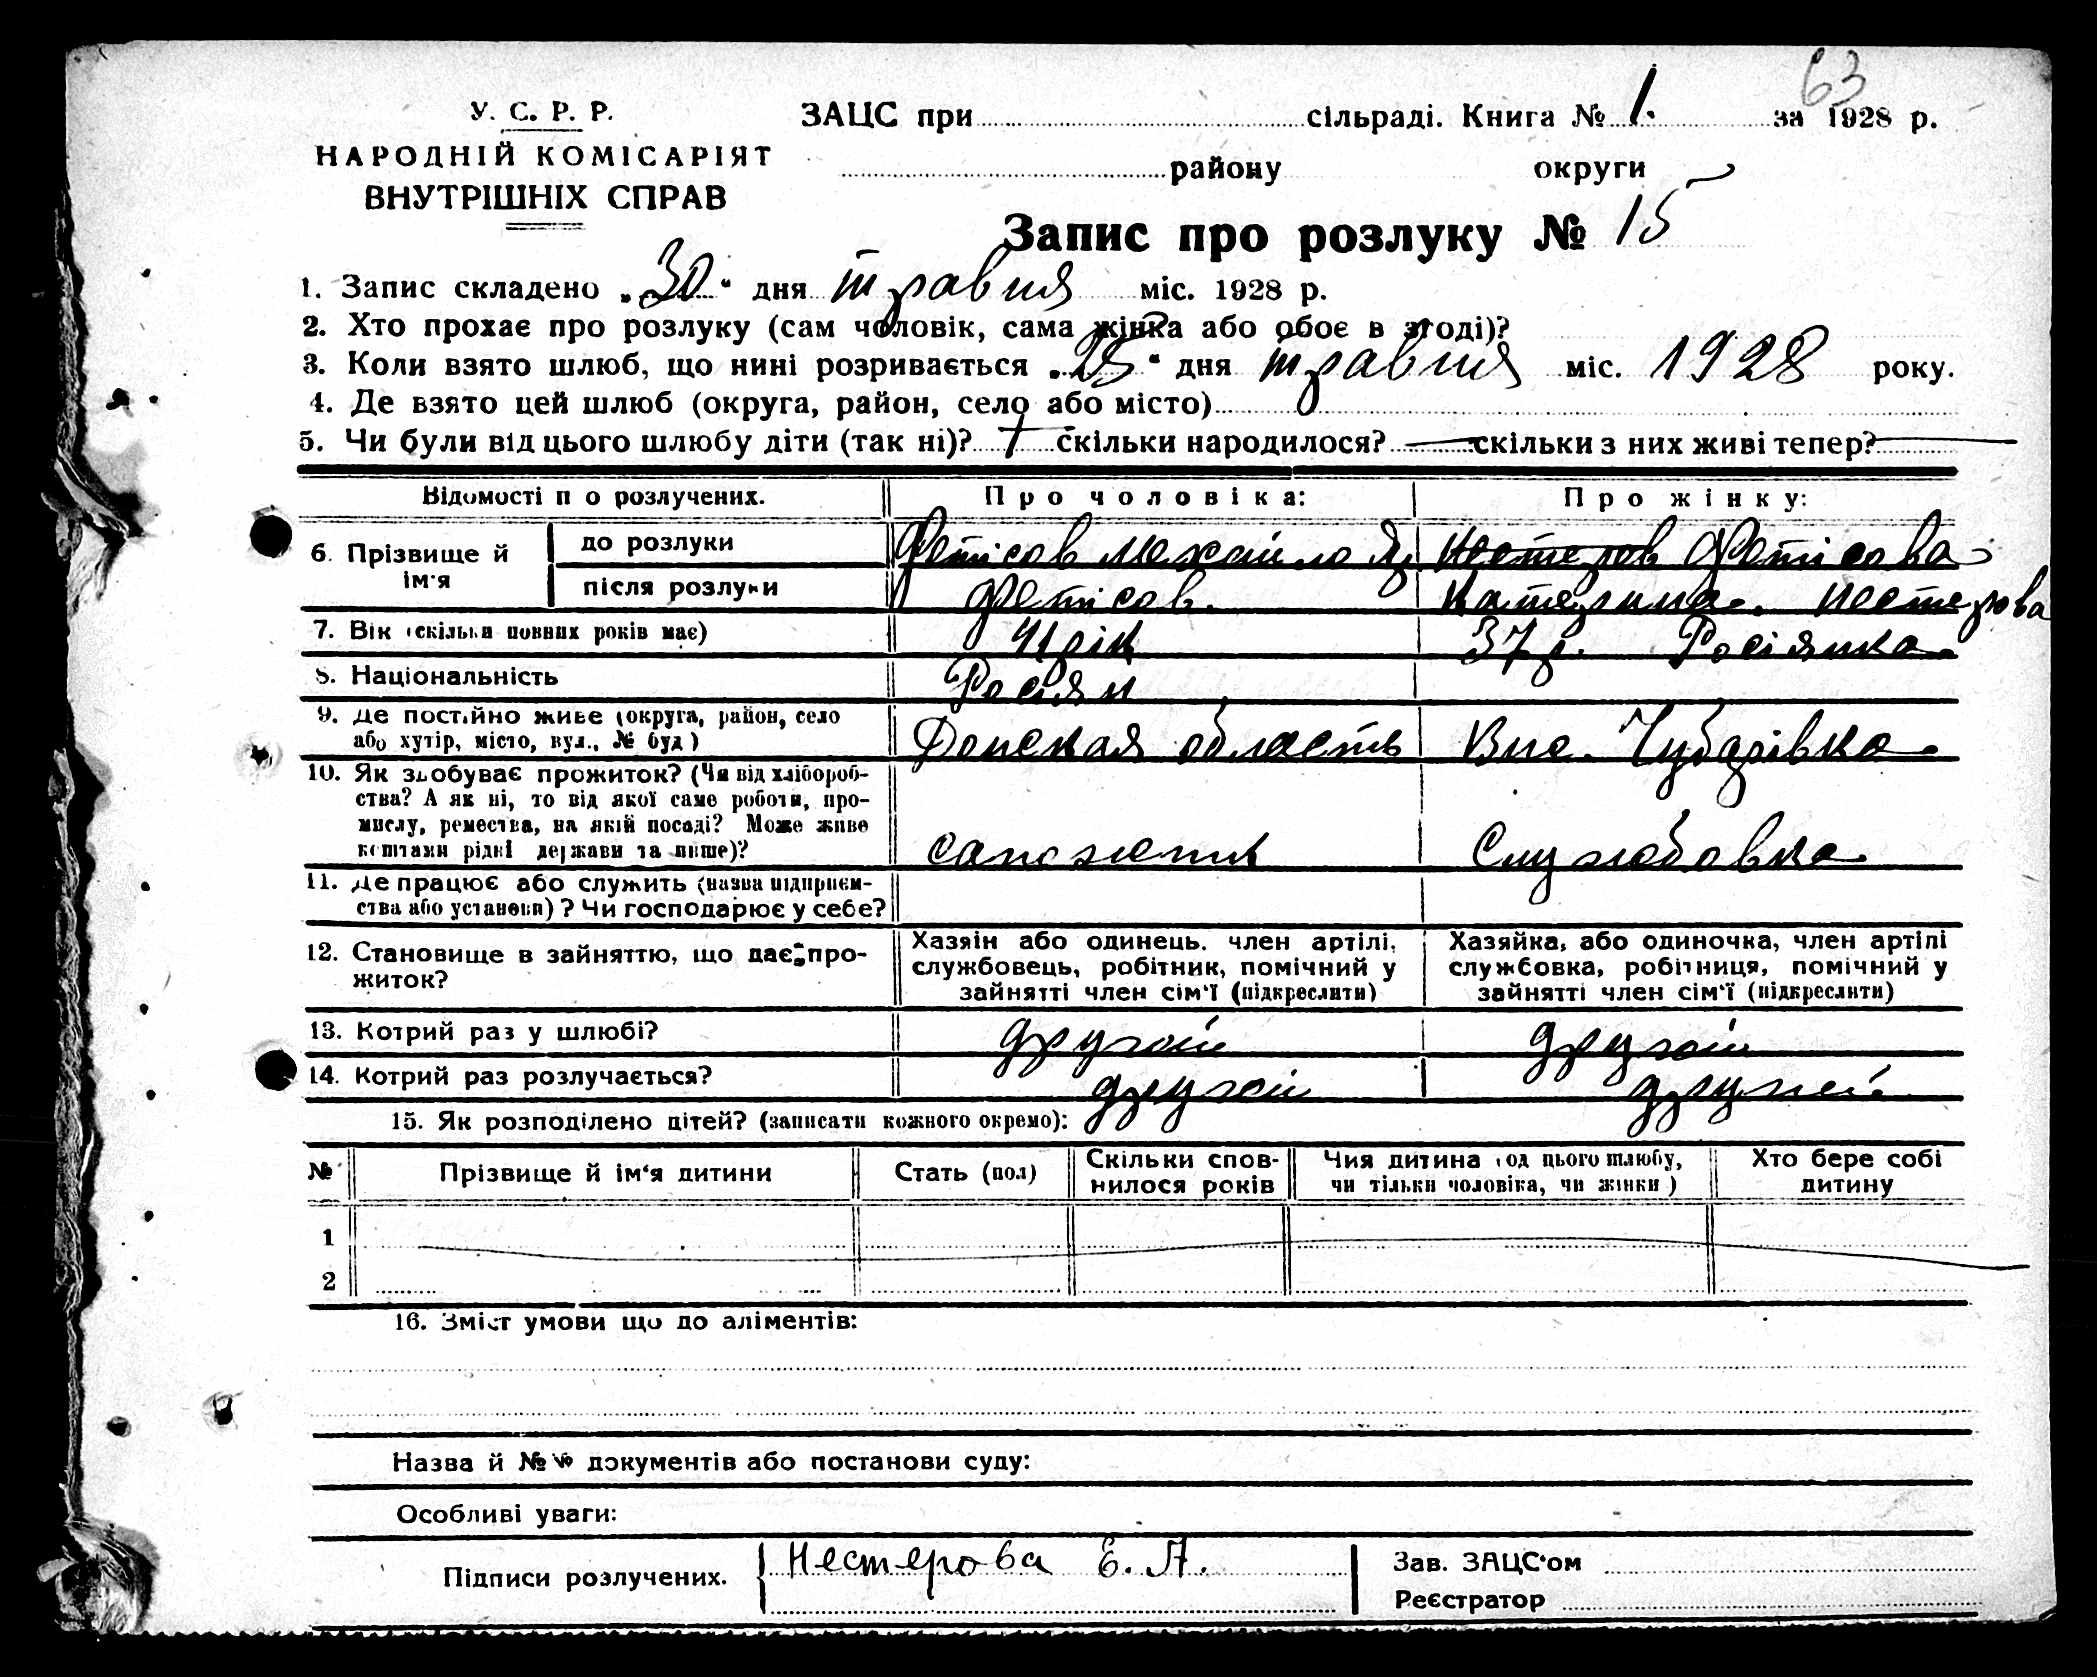 63
У. С. Р. Р.
НАРОДНІЙ КОМІСАРІЯТ
ВНУТРІШНІХ СПРАВ
ЗАЦС при сільраді. Книга № 1. за 1928 р.
району округи
Запис про розлуку № 15
1. Запис складено „30“ дня травня міс. 1928 р.
2. Хто прохає про розлуку (сам чоловік, сама жінка або обоє в згоді)?
3. Коли взято шлюб, що нині розривається „25“ дня травня міс. 1928 року.
4. Де взято цей шлюб (округа, район, село або місто)
5. Чи були від цього шлюбу діти (так ні)? скільки народилося? — скільки з них живі тепер? —
Відомості п о розлучених. Про чоловіка: Про жінку:
6. Прізвище й ім'я до розлуки Фетісов Михайло Нестеров Фетісова
після розлуки Фетісов. Катерина. Нестерова
7. Вік (скільки повних років має) 41 рік 37 р. Росіянка.
8. Національність Росіян
9. Де постійно живе (округа, район, село
або хутір, місто, вул., № буд) Донская область Вис. Чубарівка.
10. Як здобуває прожиток? (Чи від хлібороб-
ства? А як ні, то від якої саме роботи, про-
мислу, ремества, на якій посаді? Може живе
коштами рідні держави та инше)? сапожник Службовка
11. Де працює або служить (назва підприєм-
ства або установи)? Чи господарює у себе?
12. Становище в зайняттю, що дає про-
житок?
Хазяін або одинець. член артілі,
службовець, робітник, помічний у
зайнятті член сім'ї (підкреслити)
Хазяйка, або одиночка, член артілі
службовка, робітниця, помічний у
зайнятті член сім'ї (підкреслити)
13. Котрий раз у шлюбі? другой другой
14. Котрий раз розлучається? другой другой
15. Як розподілено дітей? (записати кожного окремо):
№ Прізвище й ім'я дитини Стать (пол) Скільки спов-
нилося років Чия дитина (од цього шлюбу,
чи тільки чоловіка, чи жінки) Хто бере собі
дитину
1
2
16. Зміст умови що до аліментів:
Назва й №№ документів або постанови суду:
Особливі уваги:
Підписи розлучених. Нестерова Е. А.
Зав. ЗАЦС'ом
Реєстратор